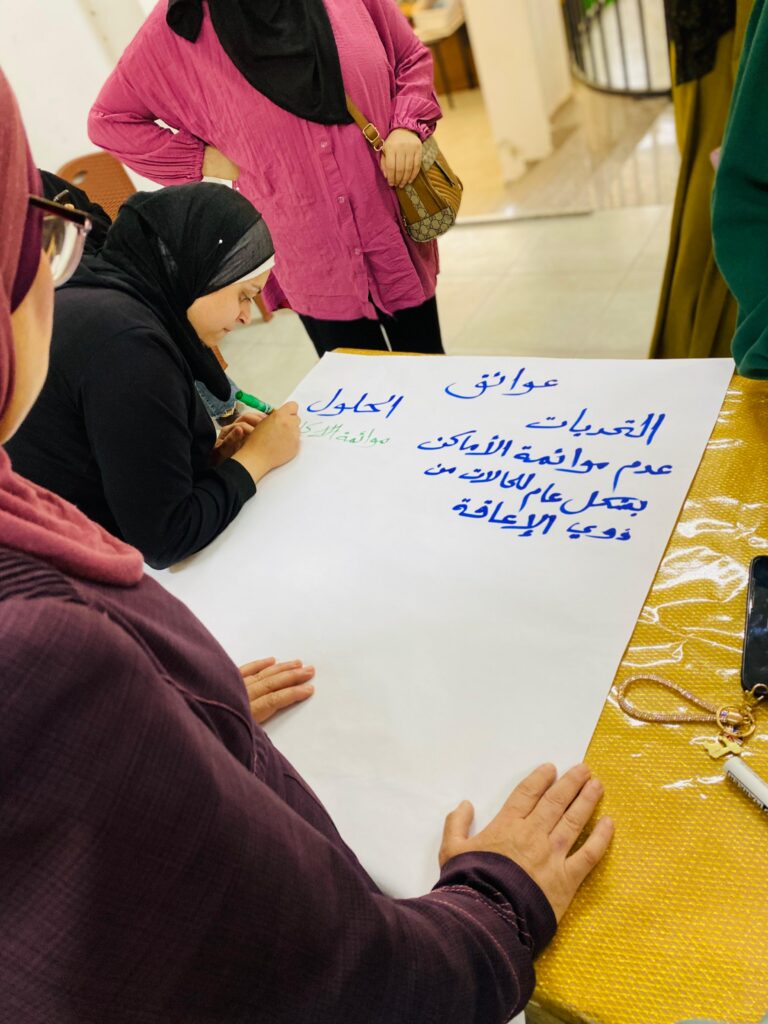 عوائق
التحديات
عدم موائمة الأماكن
بشكل عام للحالات من
ذوي الإعاقة
الحلول
موائمة